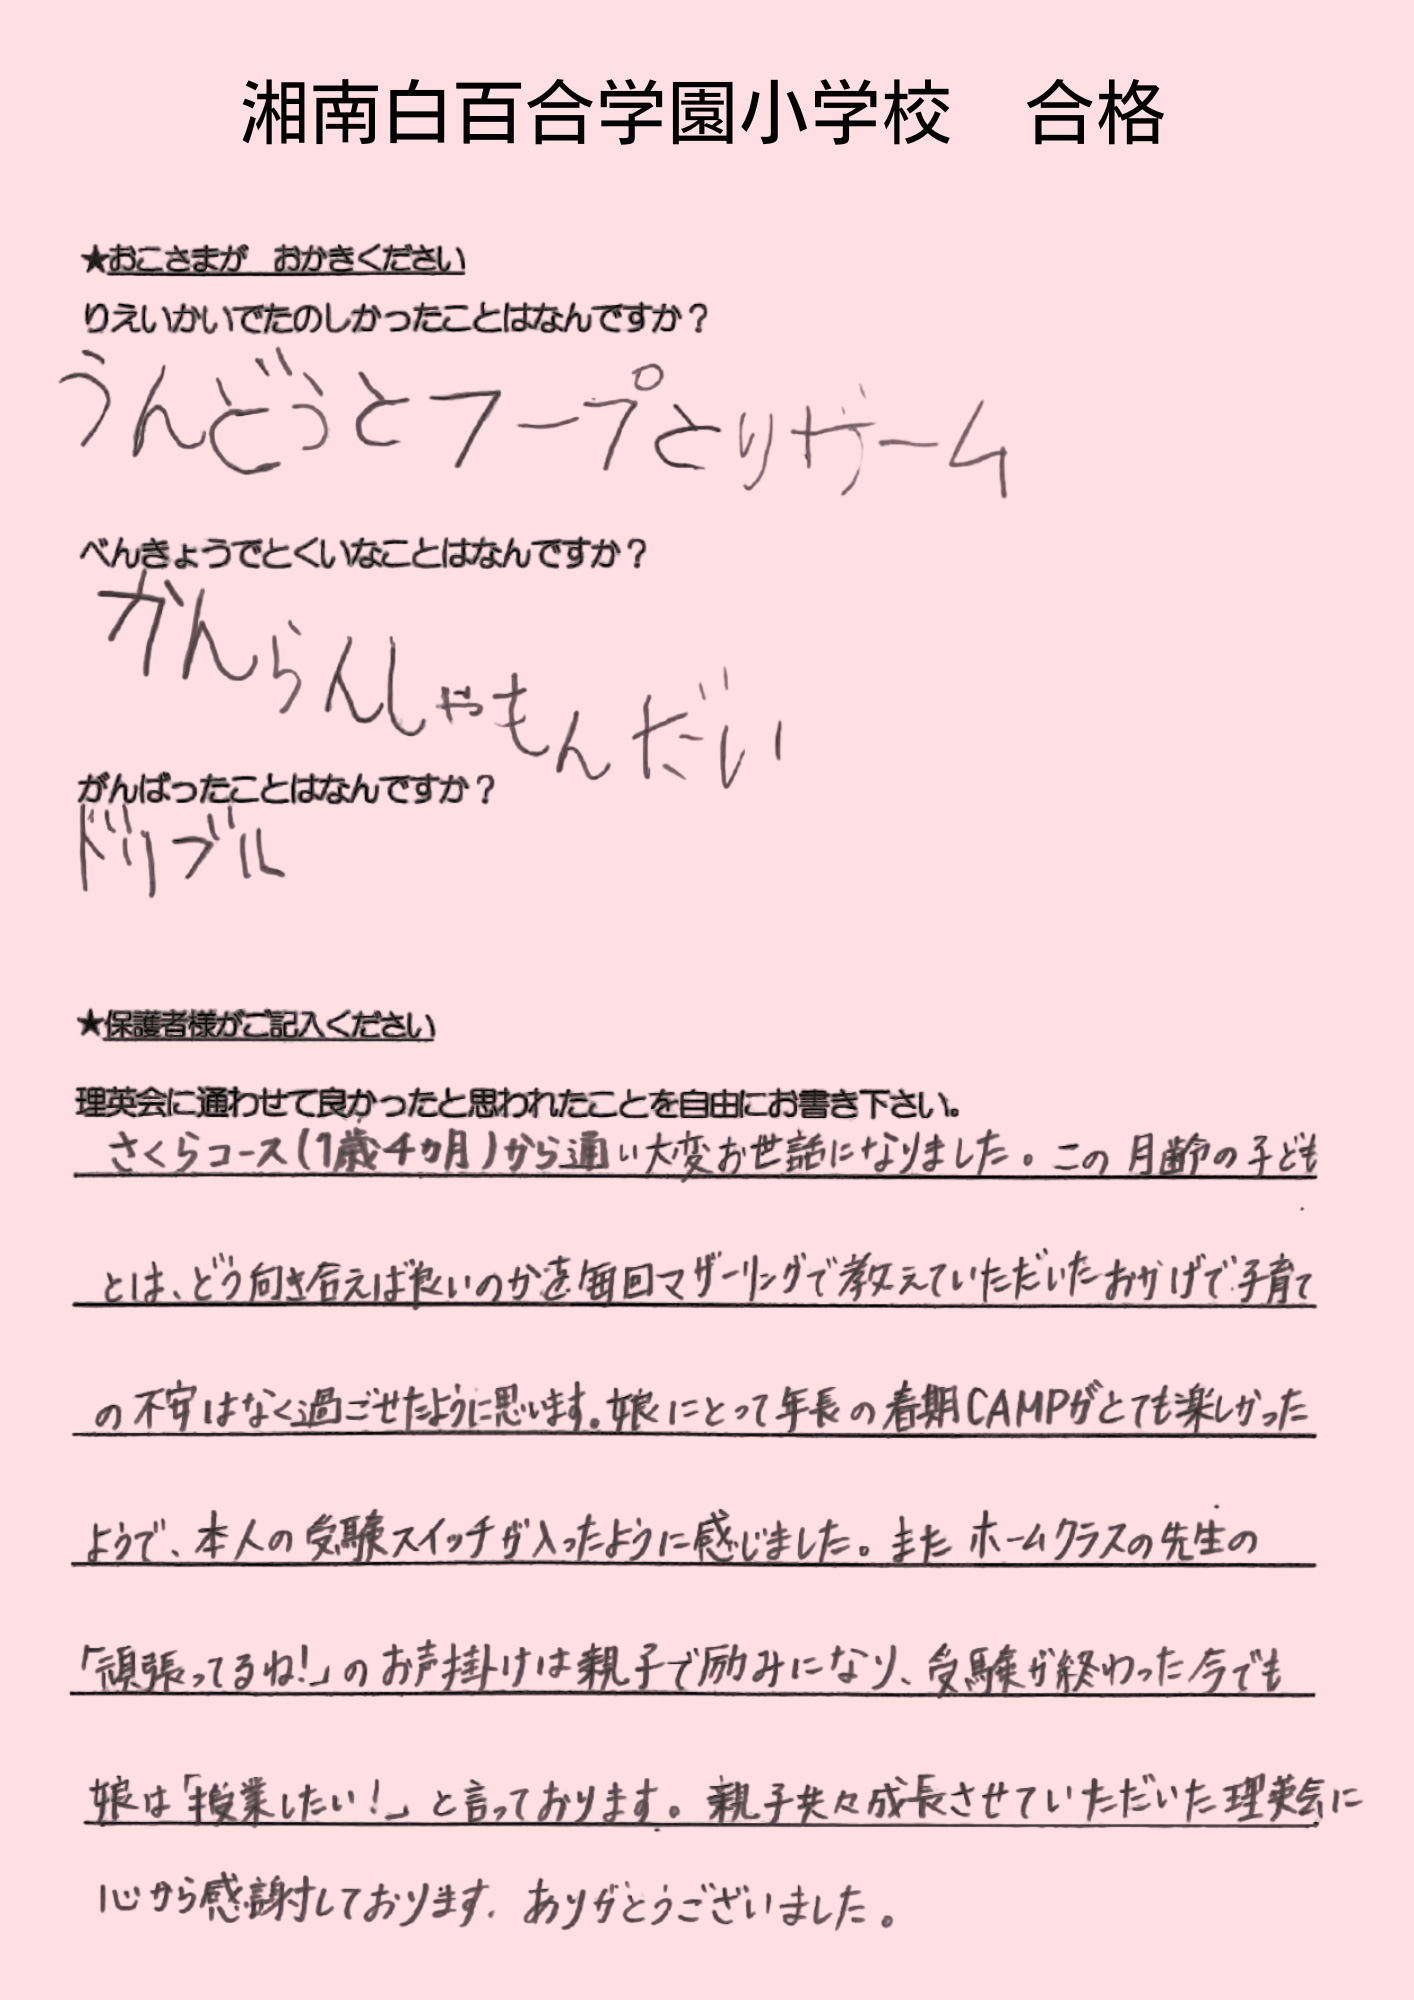 湘南白百合学園小学校　合格
★おこさまが　おかきください
りえいかいでたのしかったことはなんですか？
うんどうとフープとりゲーム
べんきょうでとくいなことはなんですか？
かんらんしゃもんだい
がんばったことはなんですか？
ドリブル
★保護者様がご記入ください
理英会に通わせて良かったと思われたことを自由にお書き下さい。
さくらコース(1歳4カ月)から通い大変お世話になりました。この月齢の子ども
とは、どう向き合えば良いのかを毎回マザーリングで教えていただいたおかげで子育て
の不安はなく過ごせたように思います。娘にとって年長の春期CAMPがとても楽しかった
ようで、本人の受験スイッチが入ったように感じました。またホームクラスの先生の
「頑張ってるね!」のお声掛けは親子で励みになり、受験が終わった今でも
娘は「授業したい!」と言っております。親子共々成長させていただいた理英会に
心から感謝しております。ありがとうございました。